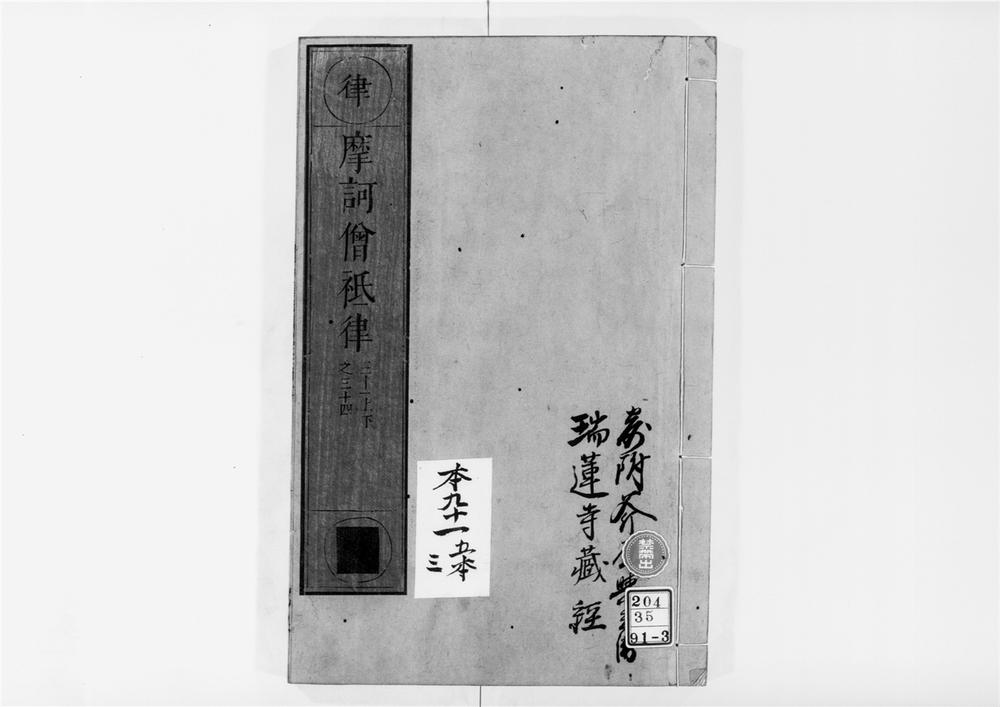 律
摩訶僧祇律
三十一上下
之三十四
本九十一
五本
三
寄附
瑞蓮寺藏經
禁帶出
204
35
91-3